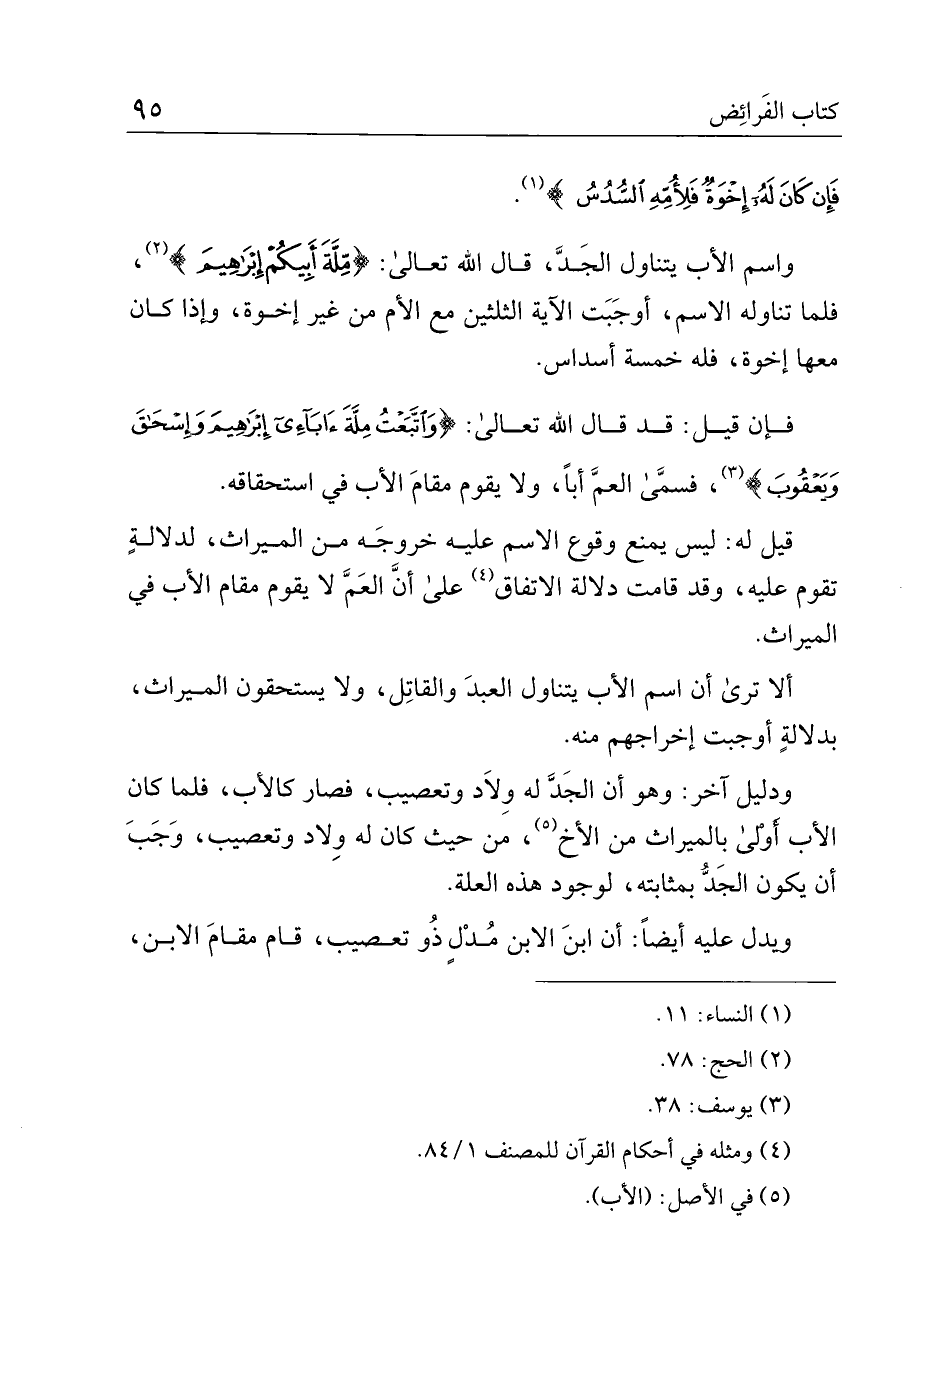 كتاب الفَرائِض ٩٥
فَإِن كَانَ لَهُۥٓ إِخْوَةٌ فَلِأُمِّهِ ٱلسُّدُسُ ﴾(١).
واسم الأب يتناول الجَدَّ، قال الله تعالىٰ: ﴿مِّلَّةَ أَبِيكُمْ إِبْرَٰهِيمَ ﴾(٢)،
فلما تناوله الاسم، أوجبَت الآية الثلثين مع الأم من غير إخوة، وإذا كان
معها إخوة، فله خمسة أسداس.
فإن قيل: قد قال الله تعالىٰ: ﴿وَٱتَّبَعْتُ مِلَّةَ ءَابَآءِىٓ إِبْرَٰهِيمَ وَإِسْحَٰقَ
وَيَعْقُوبَ ﴾(٣)، فسمَّىٰ العمَّ أباً، ولا يقوم مقامَ الأب في استحقاقه.
قيل له: ليس يمنع وقوع الاسم عليه خروجَه من الميراث، لدلالةٍ
تقوم عليه، وقد قامت دلالة الاتفاق(٤) علىٰ أنَّ العَمَّ لا يقوم مقام الأب في
الميراث.
ألا ترىٰ أن اسم الأب يتناول العبدَ والقاتِل، ولا يستحقون الميراث،
بدلالةٍ أوجبت إخراجهم منه.
ودليل آخر: وهو أن الجَدَّ له وِلَاد وتعصيب، فصار كالأب، فلما كان
الأب أَوْلىٰ بالميراث من الأخ(٥)، من حيث كان له وِلاد وتعصيب، وَجَبَ
أن يكون الجَدُّ بمثابته، لوجود هذه العلة.
ويدل عليه أيضاً: أن ابنَ الابن مُدْلٍ ذُو تعصيب، قام مقامَ الابن،
(١) النساء: ١١.
(٢) الحج: ٧٨.
(٣) يوسف: ٣٨.
(٤) ومثله في أحكام القرآن للمصنف ١/٨٤.
(٥) في الأصل: (الأب).